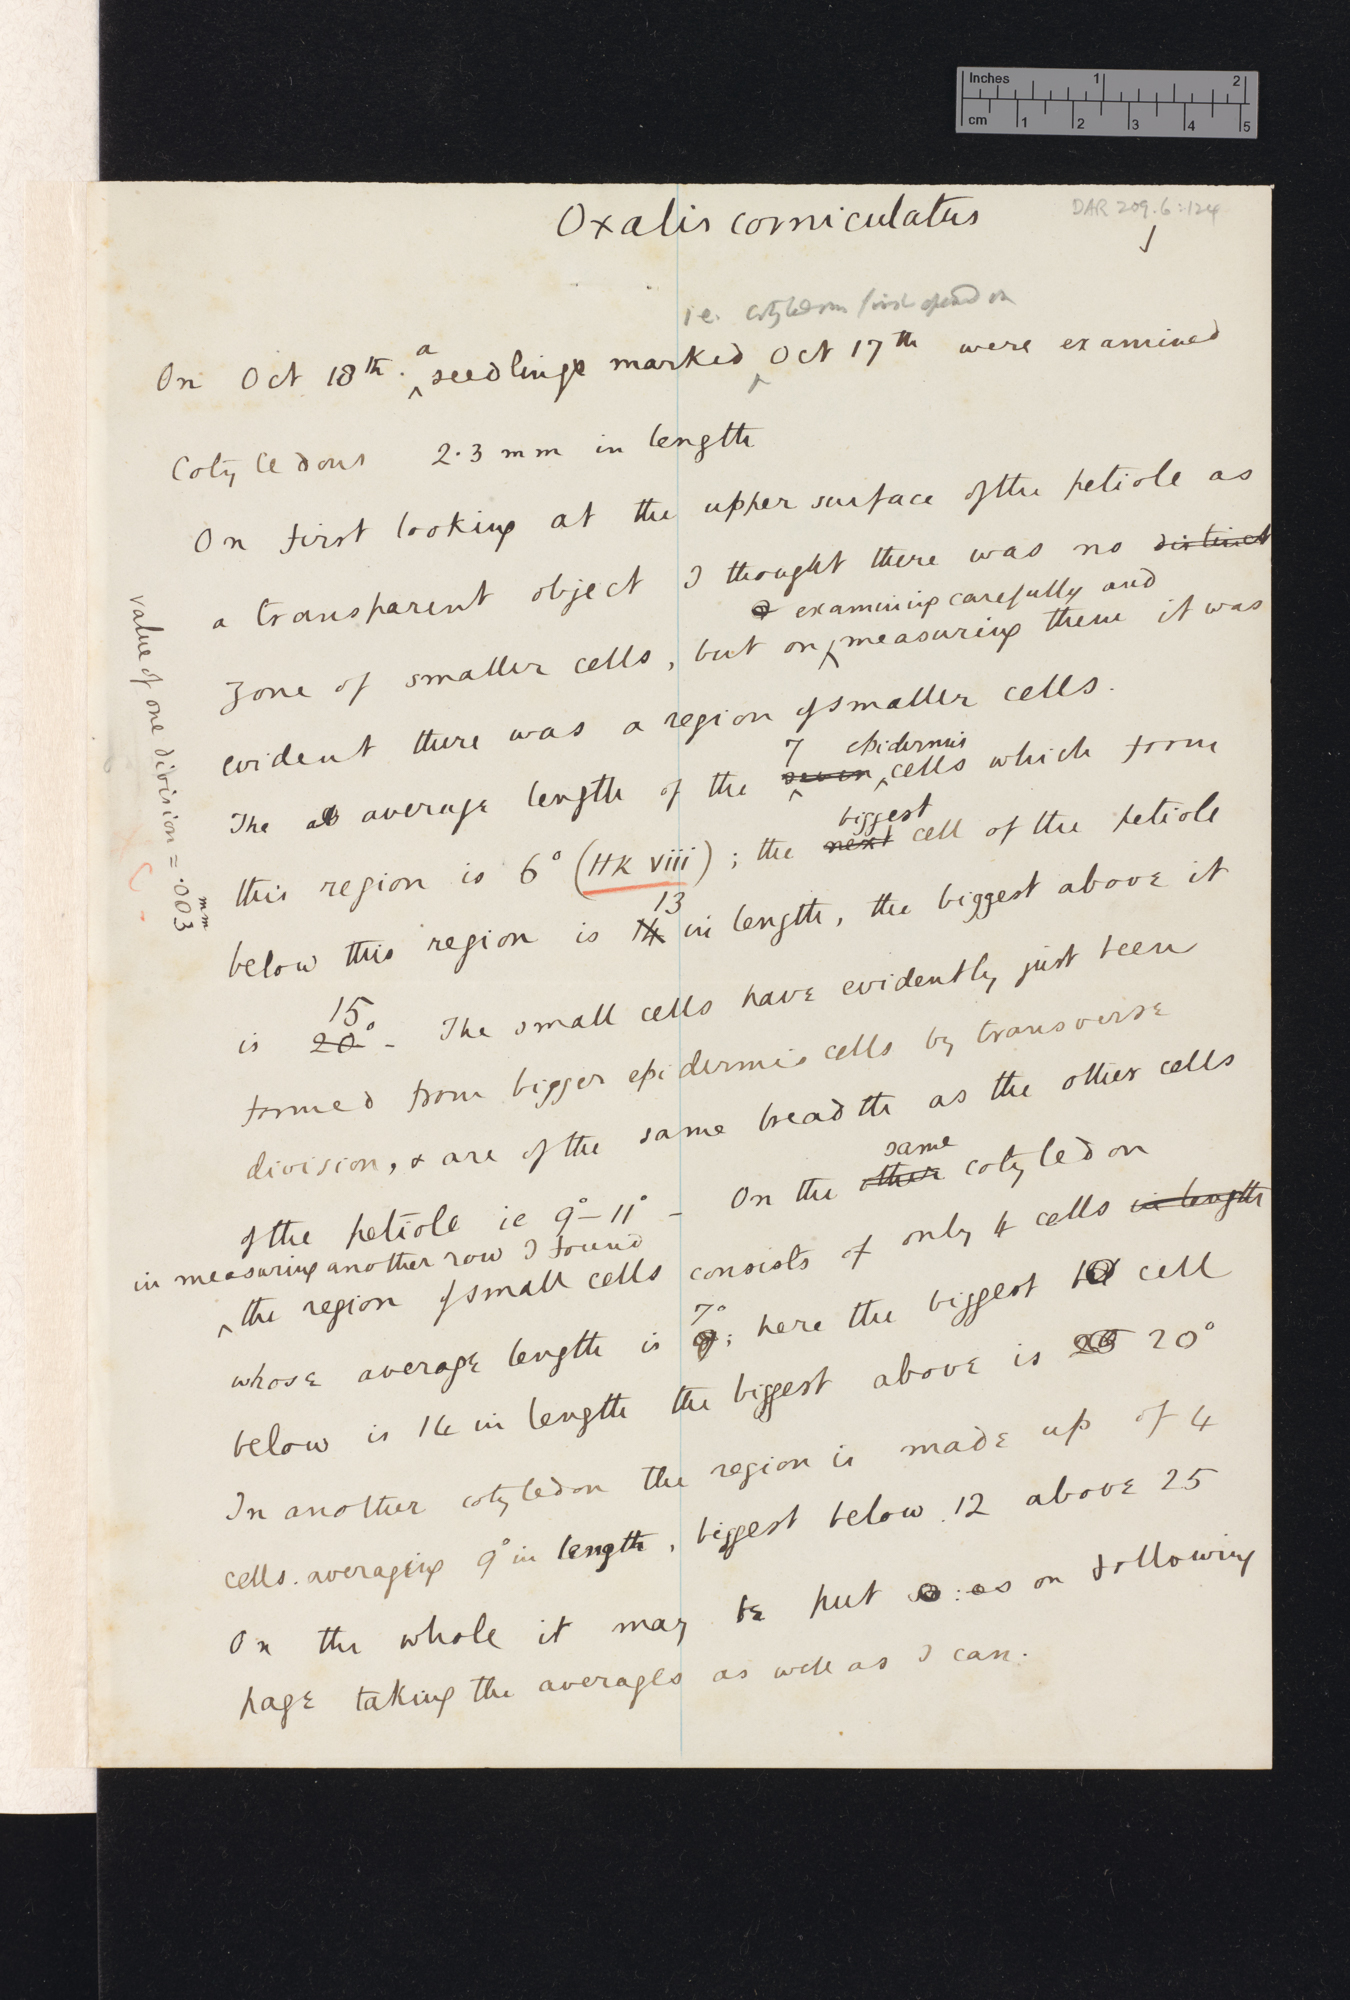 Inches 1 2
cm 1 2 3 4 5
DAR 209.6:124
Oxalis corniculatus
1
i.e. cotyledons first opened on
a
On Oct 18th. seedlings marked Oct 17th were examined
Cotyledons 2.3 mm in length
On first looking at the upper surface of the petiole as
a transparent object I thought there was no distinct
examining carefully and
zone of smaller cells, but on measuring them it was
evident there was a region of smaller cells.
7 epidermis
The average length of the seven cells which form
biggest
this region is 6° (HK viii); the next cell of the petiole
13
below this region is 14 in length, the biggest above it
15
is 20° - The small cells have evidently just been
formed from bigger epidermis cells by transverse
division, & are of the same breadth as the other cells
same
of the petiole ie 9°-11° - On the other cotyledon
in measuring another row I found
the region of small cells consists of only 4 cells in length
7°
whose average length is ; here the biggest cell
below is 14 in length the biggest above is 20°
In another cotyledon the region is made up of 4
cells. averaging 9° in length, biggest below 12 above 25
On the whole it may be put as on following
page taking the averages as well as I can.
value of one division = .003 mm
C.